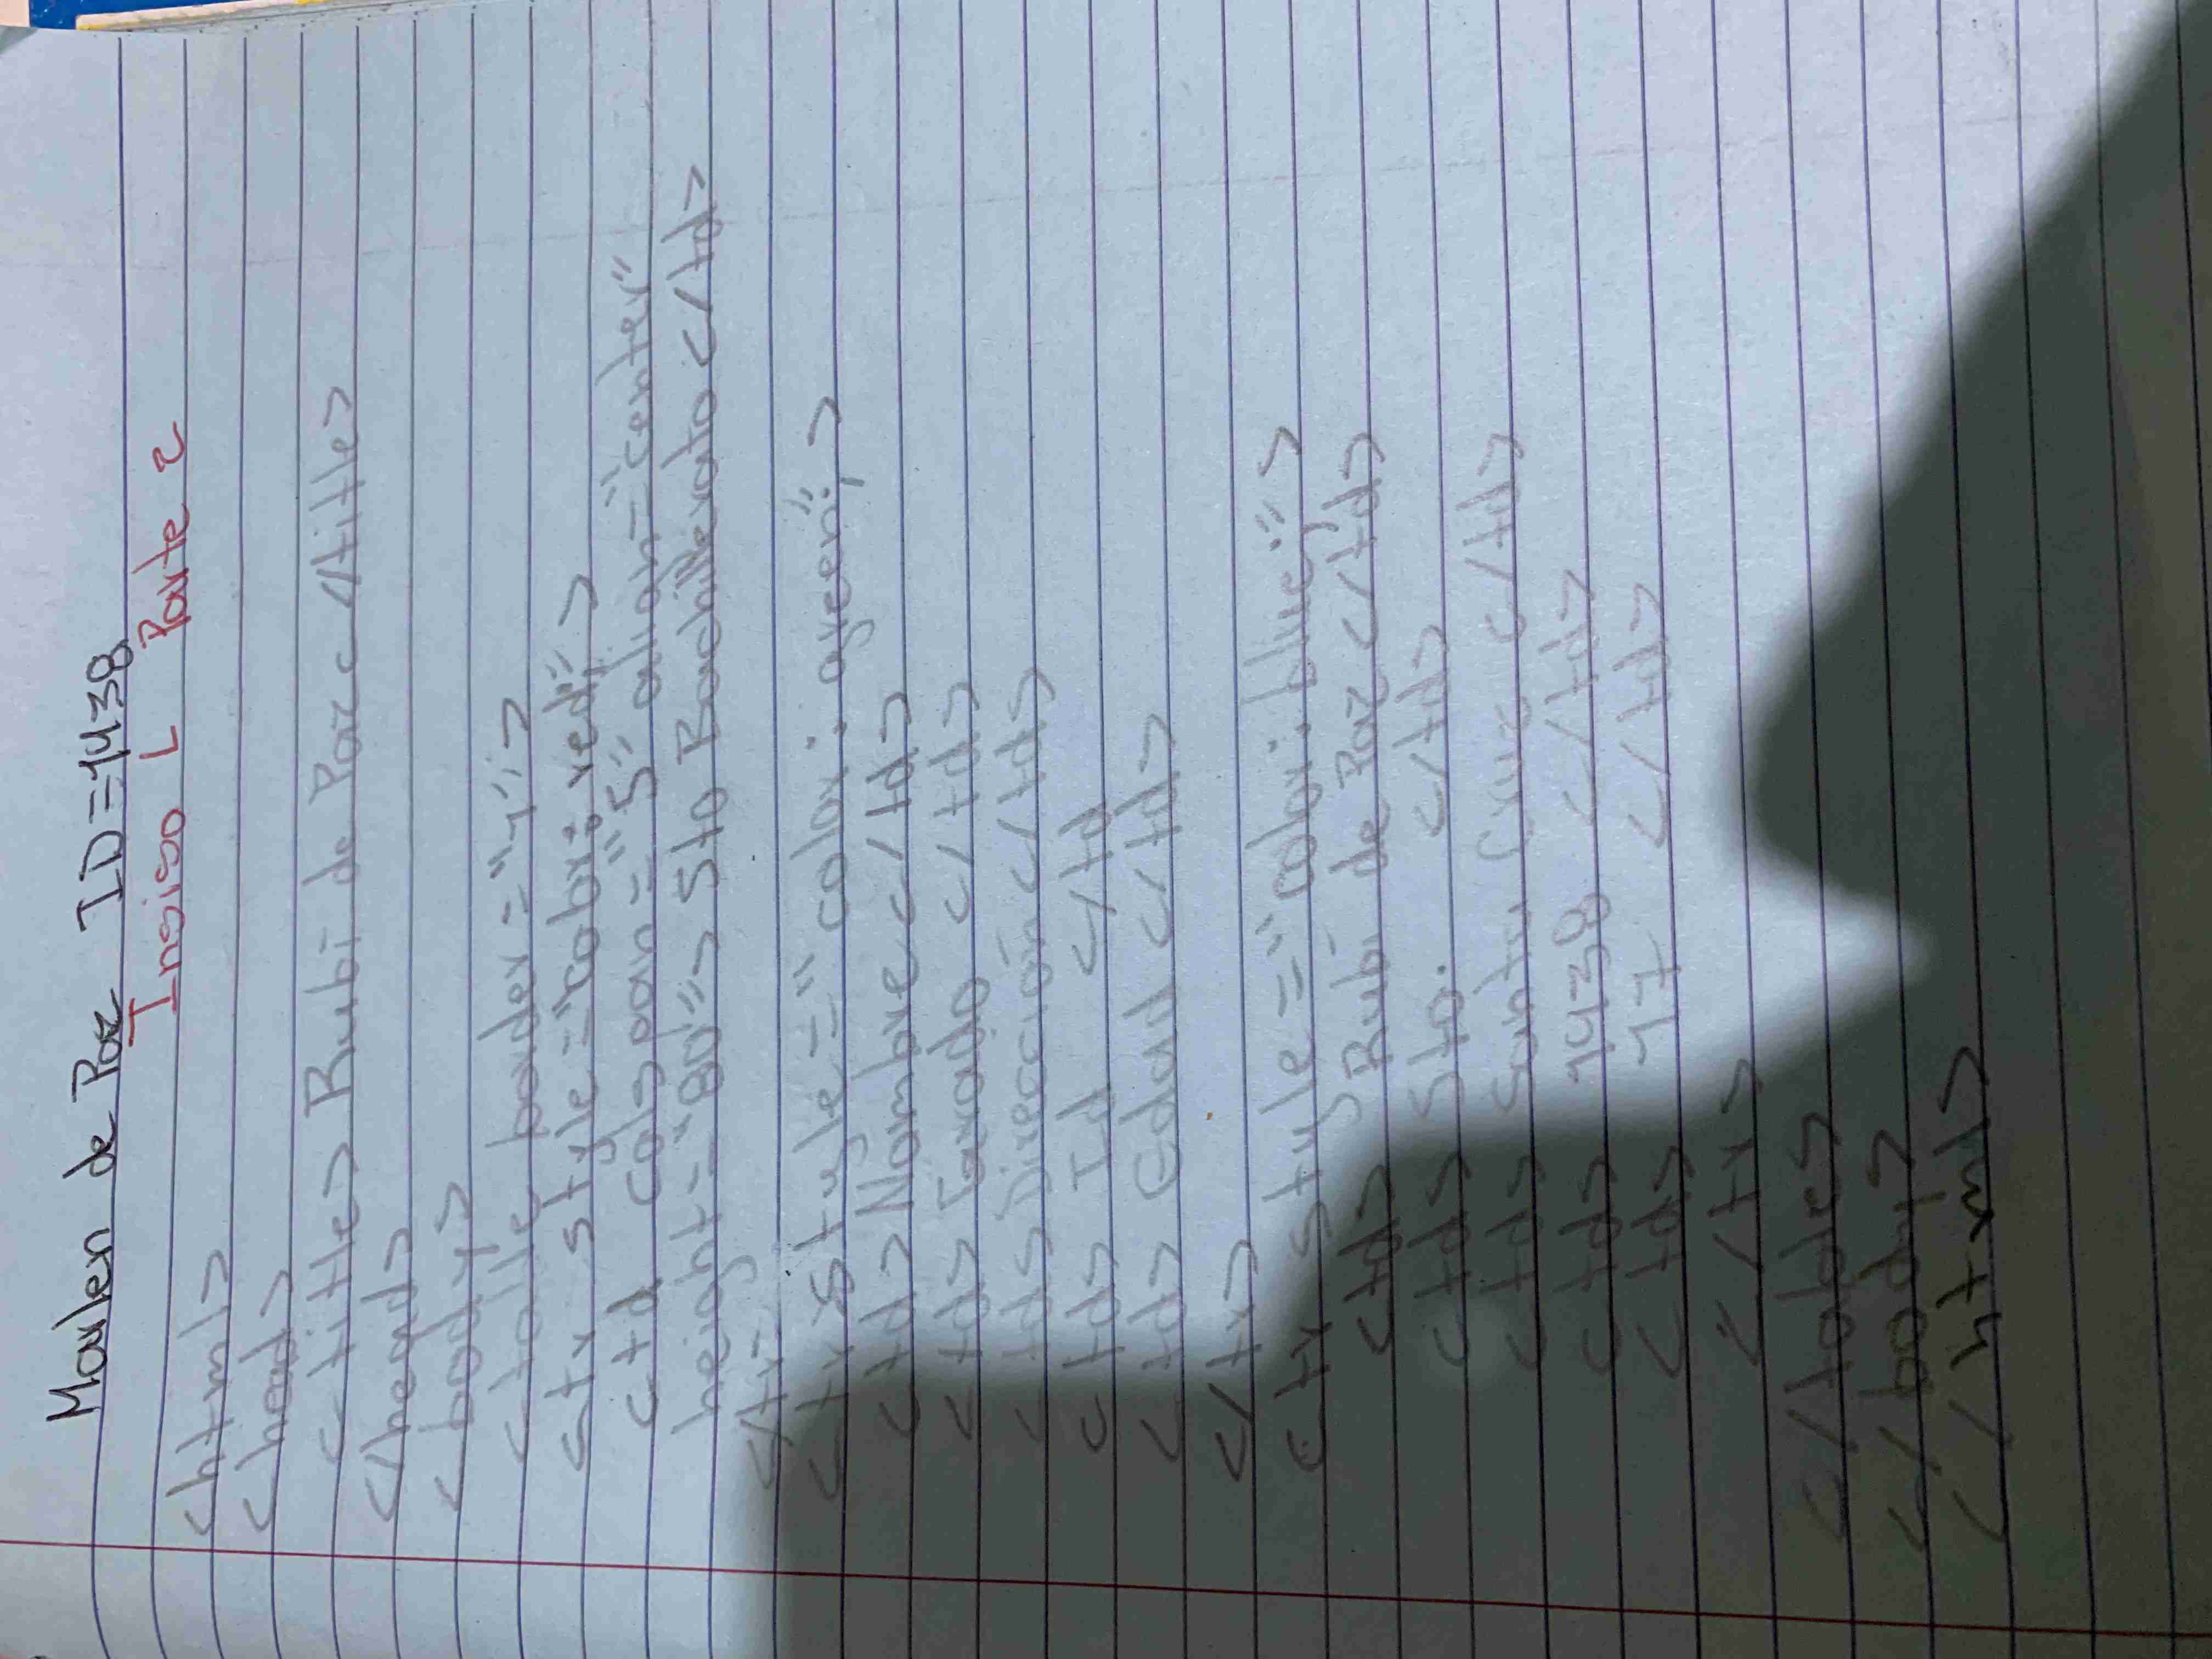 Marlen de Paz ID=1438
Insiso L Parte 2
<html>
<head>
<title> Rubi de Paz </title>
</head>
<body>
<table border="1">
<tr style="color: red;">
<td colspan="5" align="center"
height="80"> 5to Bachillerato </td>
</tr>
<tr style="color: green;">
<td> Nombre </td>
<td> Grado </td>
<td> Dirección </td>
<td> Id </td
<td> Edad </td>
</tr>
<tr style="color: blue;">
<td> Rubi de Paz </td>
<td> 5to. </td>
<td> Santa Cruz </td>
<td> 1438 </td>
<td> 17 </td>
</tr>
</table>
</body>
</html>